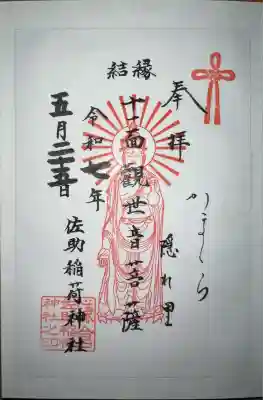 奉拝
かまくら
隠れ里
縁結
十一面観世音菩薩
佐助稲荷神社
令和七年
五月二十五日